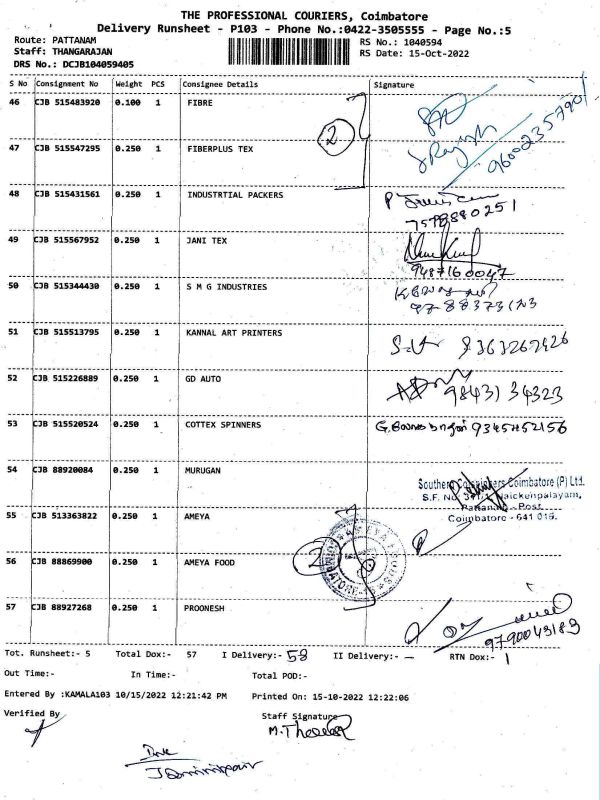 THE PROFESSIONAL COURIERS, Coimbatore
Delivery Runsheet - P103 - Phone No.:0422-3505555 - Page No.:5
Route: PATTANAM
Staff: THANGARAJAN
DRS No.: DCJB104059405
RS No.: 1040594
RS Date: 15-Oct-2022
S No Consignment No Weight PCS Consignee Details Signature
46 CJB 515483920 0.100 1 FIBRE
2
9600235790
47 CJB 515547295 0.250 1 FIBERPLUS TEX
S Rajesh
48 CJB 515431561 0.250 1 INDUSTRTIAL PACKERS
7598880251
49 CJB 515567952 0.250 1 JANI TEX
9487160047
50 CJB 515344430 0.250 1 S M G INDUSTRIES
51 CJB 515513795 0.250 1 KANNAL ART PRINTERS
52 CJB 515226889 0.250 1 GD AUTO
98431 34323
53 CJB 515520524 0.250 1 COTTEX SPINNERS
54 CJB 88920084 0.250 1 MURUGAN
Coimbatore (P) Ltd.
S.F. No. Naickenpalayam,
Pattanam - Post
Coimbatore - 641 016.
55 CJB 513363822 0.250 1 AMEYA
2
AMEYA FOODS
56 CJB 88869900 0.250 1 AMEYA FOOD
57 CJB 88927268 0.250 1 PROONESH
9790043189
Tot. Runsheet:- 5 Total Dox:- 57 I Delivery:- 58 II Delivery:- — RTN Dox:- 1
Out Time:- In Time:- Total POD:-
Entered By :KAMALA103 10/15/2022 12:21:42 PM Printed On: 15-10-2022 12:22:06
Verified By Staff Signature